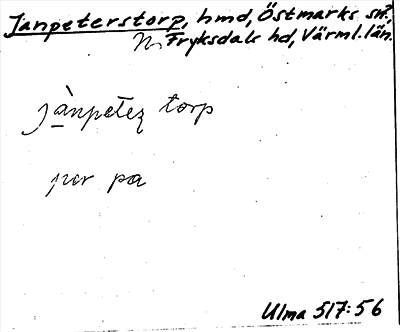 Janpeterstorp, hmd, Östmarks sn,
N. Fryksdals hd, Värml. län.
jànpetez torp
por pa
Ulma 517:56